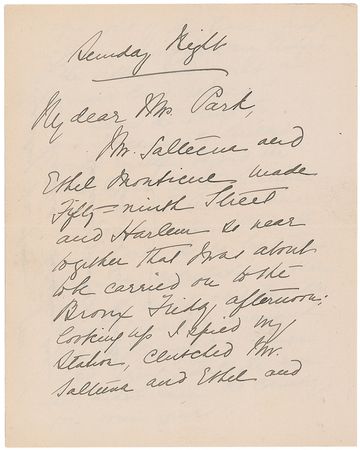 Sunday Night
My dear Mrs. Park,
Mr. Salteena and
Ethel Monticue made
Fifty-ninth Street
and Harlem so near
together that I was about
to be carried on to the
Bronx Friday afternoon;
looking up I spied my
station, clutched Mr.
Salteena and Ethel and